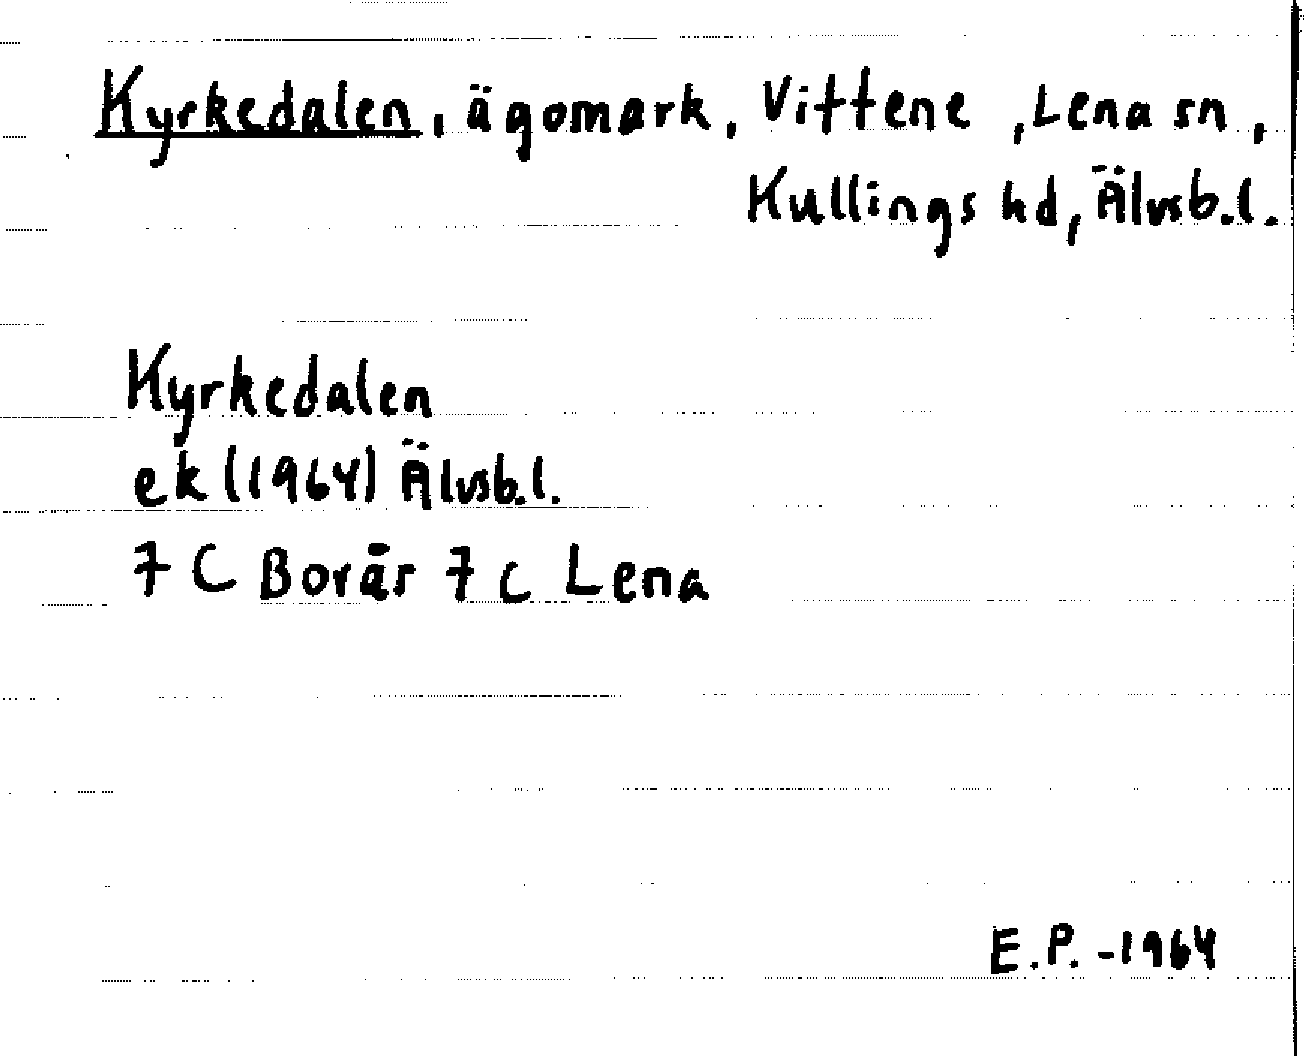 Kyrkedalen, ägomark, Vittene, Lena sn,
Kullings hd, Älvsb.l.
Kyrkedalen
ek (1964) Älvsb.l.
7 C Borås 7 c Lena
E.P. -1964